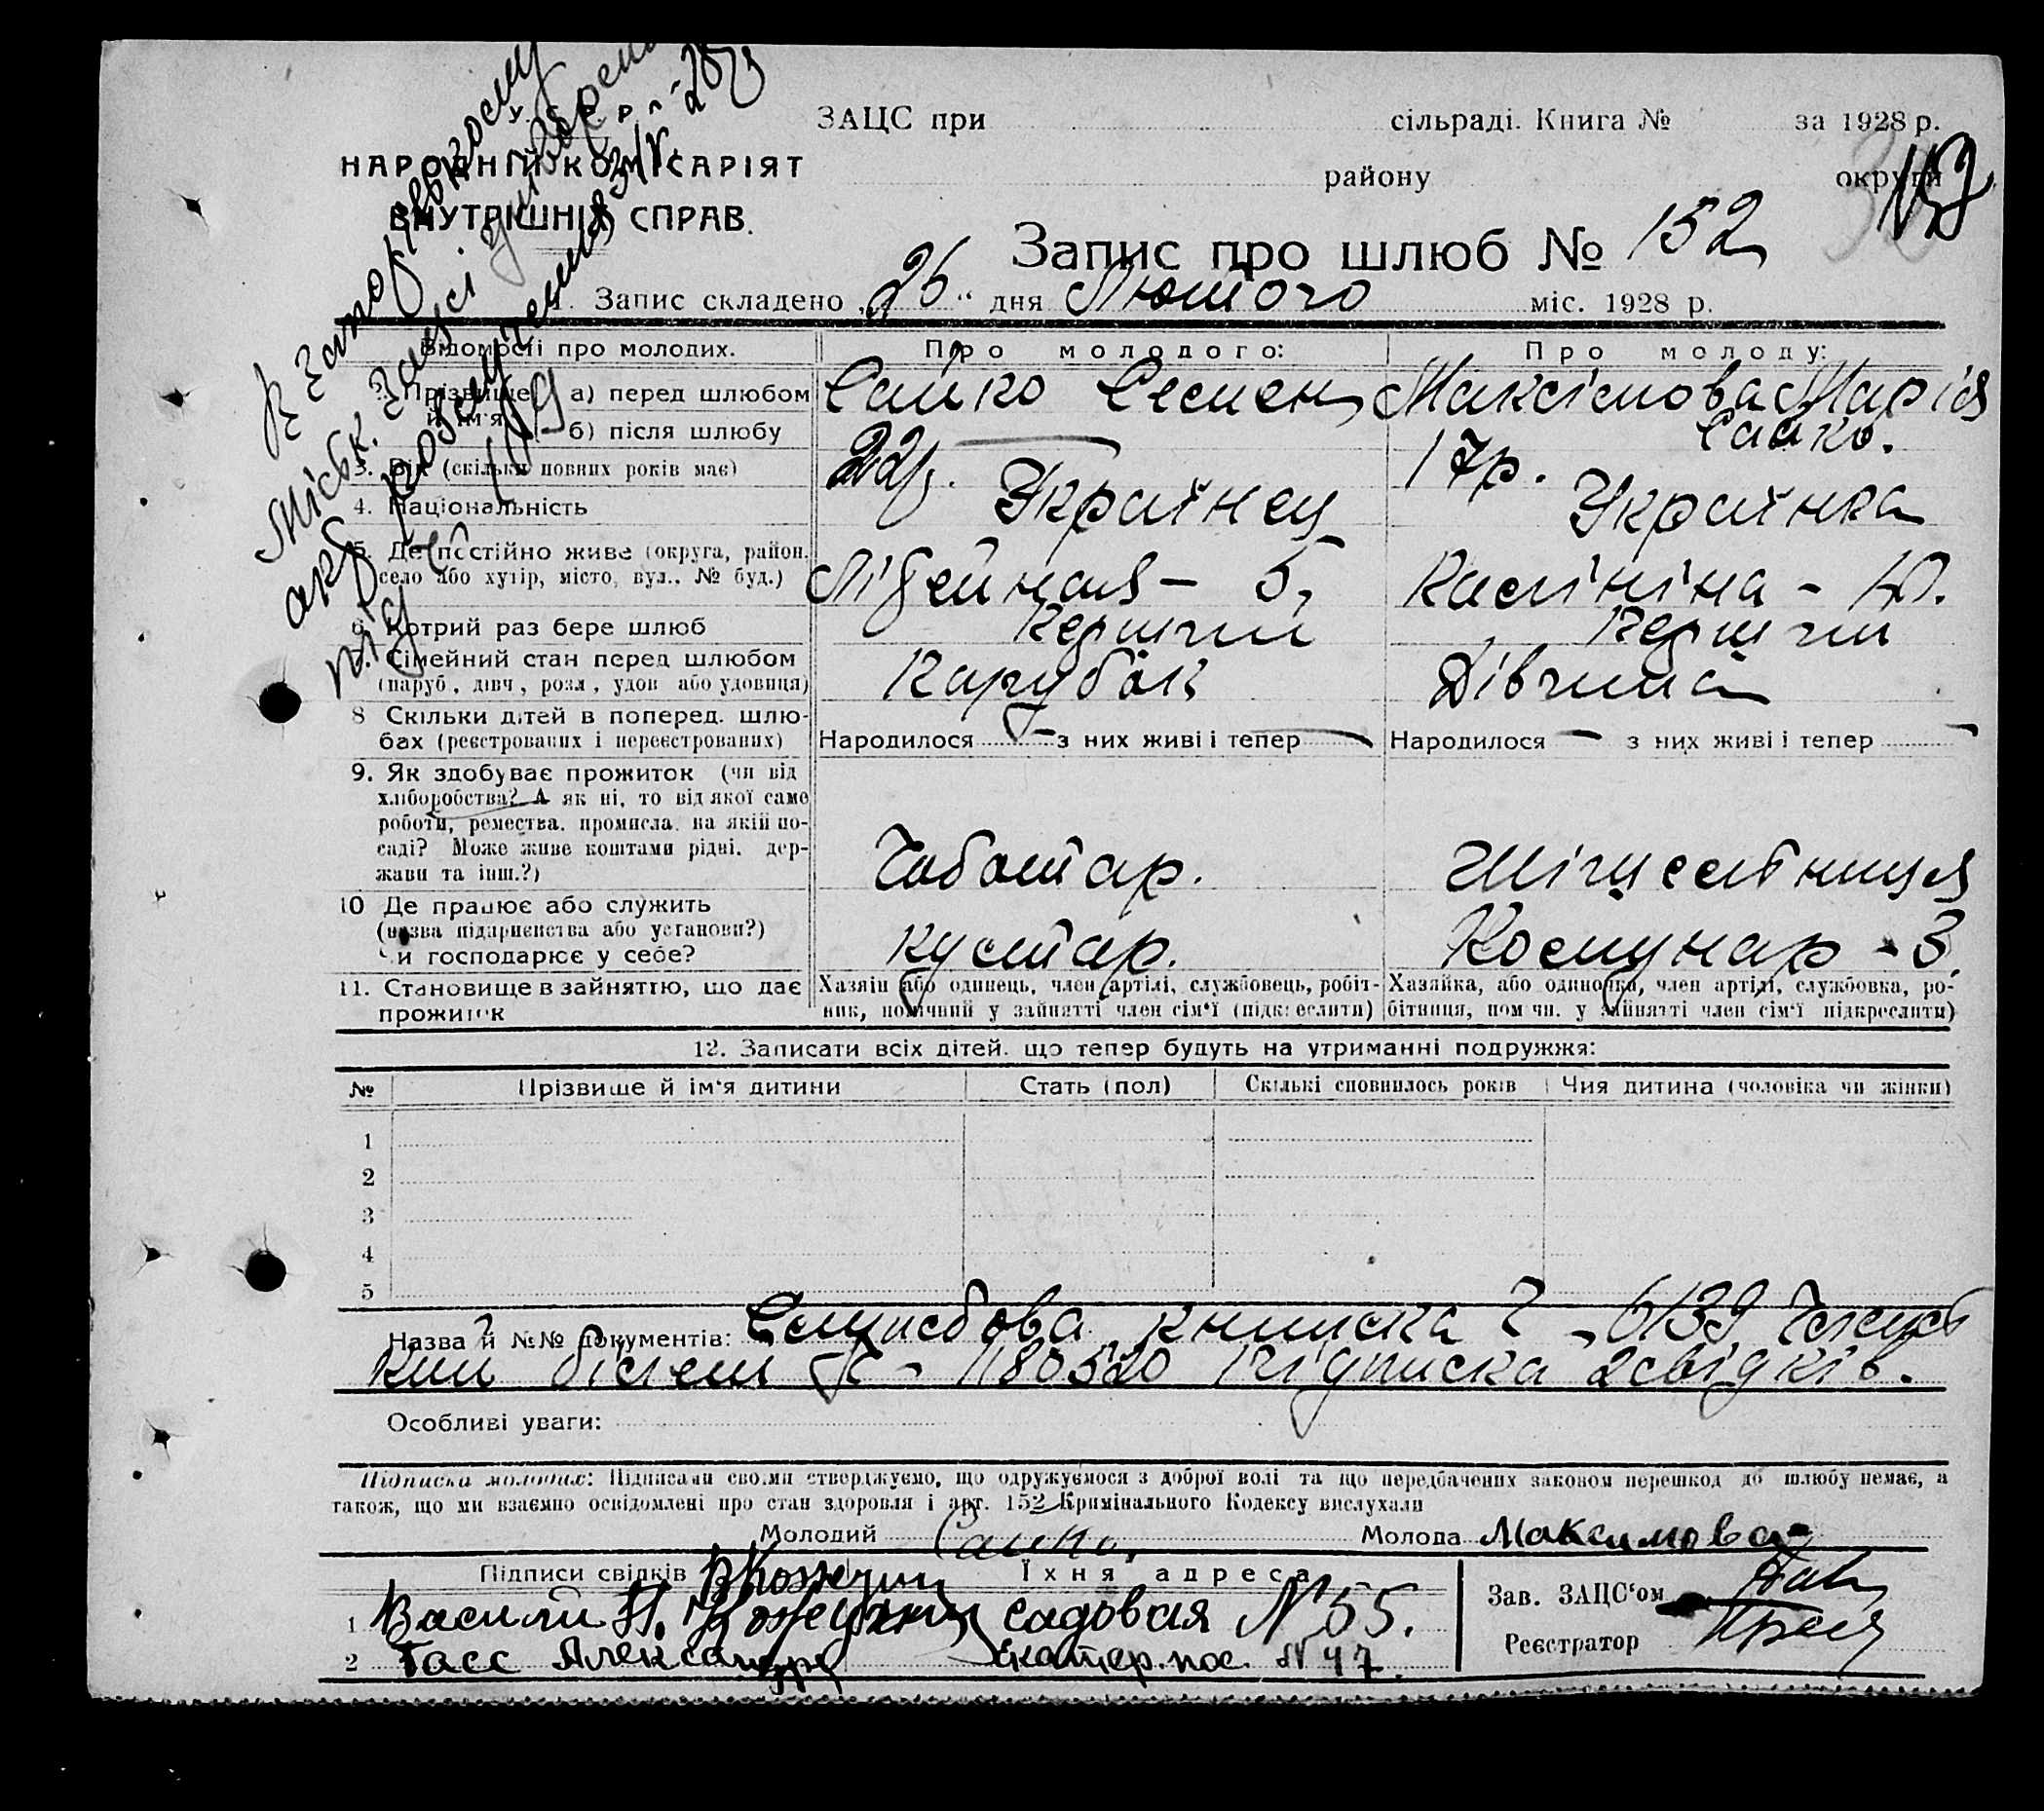 У. С. Р. Р.
НАРОДНІЙ КОМІСАРІЯТ
ВНУТРІШНІХ СПРАВ.
ЗАЦС при сільраді. Книга № за 1928 р.
району округи
Запис про шлюб № 152
1. Запис складено „26“ дня Лютого міс. 1928 р.
В Запорізькому
Міськ. Загсі
акт
під № 109
Відомості про молодих. Про молодого: Про молоду:
2. Прізвище й ім'я а) перед шлюбом Сайко Семен Максімова Марія
б) після шлюбу — Сайко.
3. Вік (скільки повних років має) 22р. 17р.
4. Національність Українец Українка
5. Де постійно живе (округа, район, село або хутір, місто, вул., № буд.) Лівейная – 5, Калініна – 10.
6. Котрий раз бере шлюб Перший Перший
7. Сімейний стан перед шлюбом (паруб., дівч., розл., удов. або удовиця) Парубок Дівчина
8 Скільки дітей в поперед. шлюбах (реєстрованих і нереєстрованих) Народилося — з них живі і тепер — Народилося — з них живі і тепер —
9. Як здобуває прожиток (чи від хліборобства? А як ні, то від якої саме роботи, ремества, промисла, на якій посаді? Може живе коштами рідні, держави та інш.?) Чоботар.
10 Де працює або служить (назва підприємства або установи?) Чи господарює у себе? кустар. Комунар - 3.
11. Становище в зайняттю, що дає прожиток Хазяін або одинець, член артілі, службовець, робітник, помічний у зайнятті член сім'ї (підкреслити) Хазяйка, або одиночка, член артілі, службовка, робітниця, помічн. у зайнятті член сім'ї підкреслити)
12. Записати всіх дітей, що тепер будуть на утриманні подружжя:
№ Прізвище й ім'я дитини Стать (пол) Скількі сповнилось років Чия дитина (чоловіка чи жінки)
1
2
3
4
5
Назва й №№ документів: книжка 6139
кий білет № 1180520 Підписка 2 свідків.
Особливі уваги:
Підписка молодих: Підписами своїми стверджуємо, що одружуємося з доброї волі та що передбачених законом перешкод до шлюбу немає, а
також, що ми взаємно освідомлені про стан здоровля і арт. 152 Кримінального Кодексу вислухали
Молодий Сайко. Молода Максимова
Підписи свідків Їхня адреса
1 Василий П. Кожухин садовая № 55.
2 Гасс Александр Екатер. пос. № 47.
Зав. ЗАЦС'ом
Реєстратор